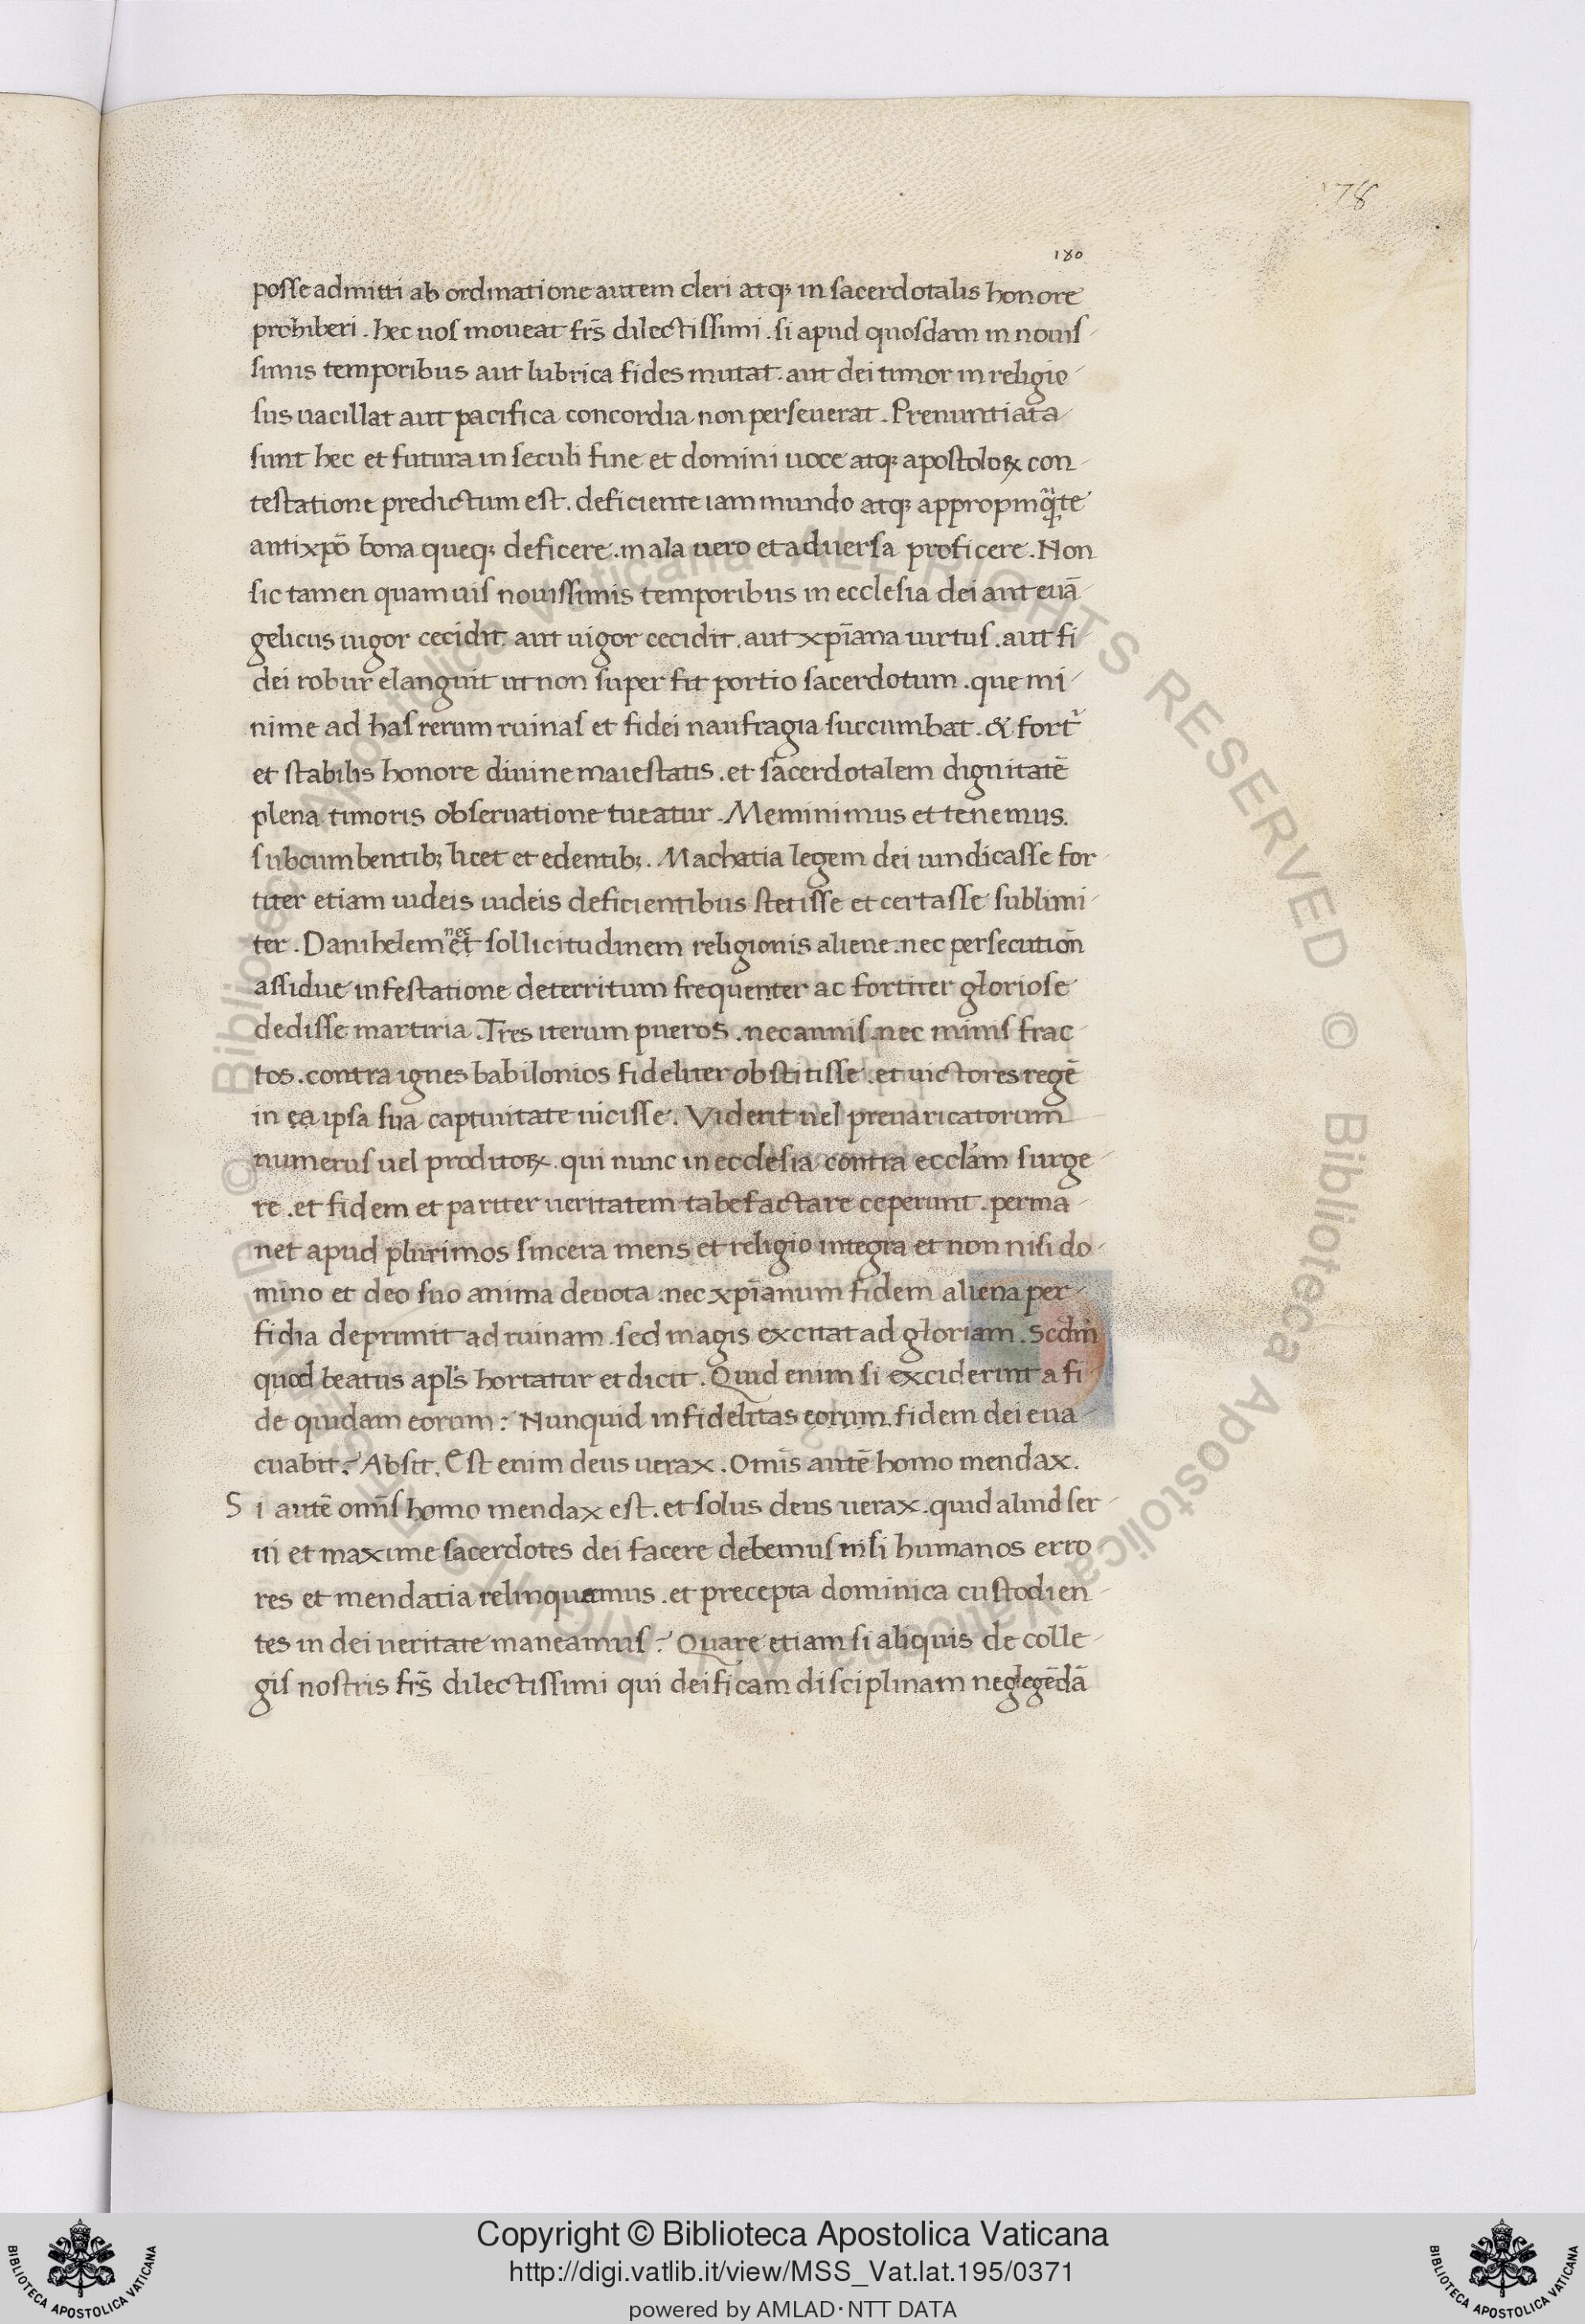 178
180
posse admitti ab ordinatione autem cleri atqꝫ in sacerdotalis honore
prohiberi . hec uos moueat frs̄ dilectissimi . si apud quosdam in nouis
simis temporibus aut lubrica fides mutat . aut dei timor in religio
sus uacillat aut pacifica concordia non perseuerat . Prenuntiata
sunt hec et futura in seculi fine et domini uoce atqꝫ apostoloꝝ con
testatione predictum est . deficiente iam mundo atqꝫ appropinq̈te
antixpō bona queqꝫ deficere . mala uero et aduersa proficere . Non
sic tamen quamuis nouissimis temporibus in ecclesia dei aut euā
gelicus uigor cecidit aut uigor cecidit . aut xp̄iana uirtus . aut fi
dei robur elanguit ut non super fit portio sacerdotum . que mi
nime ad has rerum ruinas et fidei naufragia succumbat . & fort᷑
et stabilis honore diuine maiestatis . et sacerdotalem dignitatē
plena timoris obseruatione tueatur . Meminimus et tenemus.
subcumbentibꝫ licet et edentibꝫ . Machatia legem dei uindicasse for
titer etiam iudeis iudeis deficientibus stetisse et certasse sublimi
ter . Danihelem nec et sollicitudinem religionis aliene . nec persecution̄
assidue infestatione deterritum frequenter ac fortiter gloriose
dedisse martiria . Tres iterum pueros . nec annis . nec minis frac
tos . contra ignes babilonios fideliter obstitisse . et uictores regē
in ea ipsa sua captiuitate uicisse . Viderit uel preuaricatorum
numerus uel proditoꝝ . qui nunc in ecclesia contra eccl̄am surge
re . et fidem et pariter ueritatem tabefactare ceperunt . perma
net apud plurimos sincera mens et religio integra et non nisi do
mino et deo suo anima deuota . nec xp̄ianum fidem aliena per
fidia deprimit ad ruinam . sed magis excitat ad gloriam . Scd̄m
quod beatus apl̄s hortatur et dicit . Quid enim si exciderunt a fi
de quidam eorum : Nunquid infidelitas eorum fidem dei eua
cuabit ? Absit . Est enim deus uerax . Omīs autē homo mendax .
Si autē omīs homo mendax est . et solus deus uerax . quid aliud ser
ui et maxime sacerdotes dei facere debemus nisi humanos erro
res et mendatia relinquamus . et precepta dominica custodien
tes in dei ueritate maneamus ? Quare etiam si aliquis de colle
gis nostris frs̄ dilectissimi qui deificam disciplinam neglegēdā
© Biblioteca Apostolica Vaticana ALL RIGHTS RESERVED
Copyright © Biblioteca Apostolica Vaticana
http://digi.vatlib.it/view/MSS_Vat.lat.195/0371
powered by AMLAD·NTT DATA
BIBLIOTECA APOSTOLICA VATICANA
BIBLIOTECA APOSTOLICA VATICANA